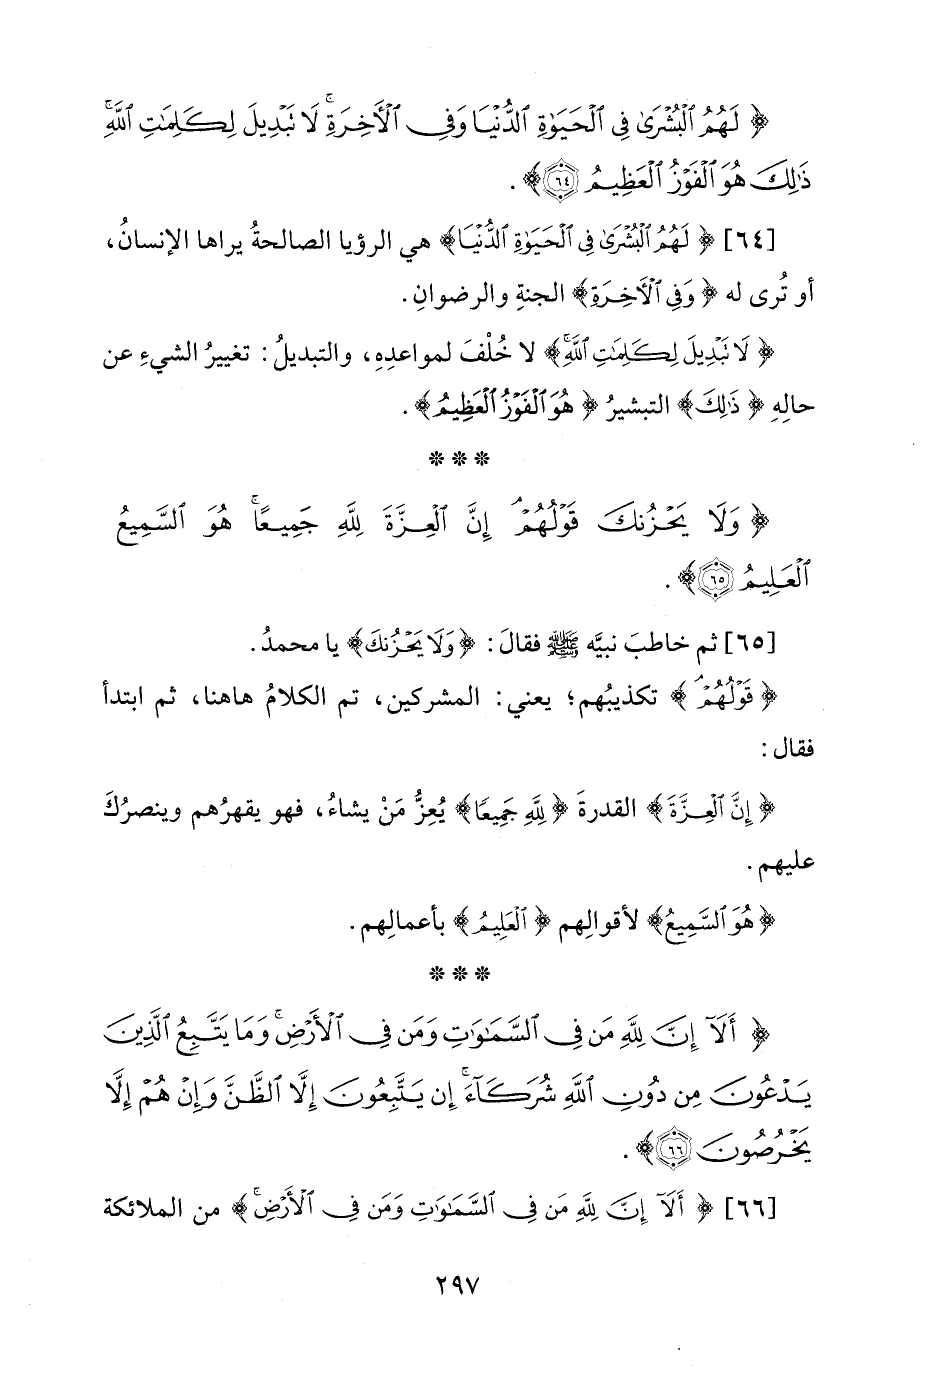 ﴿ لَهُمُ ٱلْبُشْرَىٰ فِى ٱلْحَيَوٰةِ ٱلدُّنْيَا وَفِى ٱلْـَٔاخِرَةِ ۚ لَا تَبْدِيلَ لِكَلِمَٰتِ ٱللَّهِ ۚ
ذَٰلِكَ هُوَ ٱلْفَوْزُ ٱلْعَظِيمُ ٦٤ ﴾ .
[٦٤] ﴿ لَهُمُ ٱلْبُشْرَىٰ فِى ٱلْحَيَوٰةِ ٱلدُّنْيَا﴾ هي الرؤيا الصالحةُ يراها الإنسانُ،
أو تُرى له ﴿ وَفِى ٱلْـَٔاخِرَةِ﴾ الجنةِ والرضوانِ.
﴿ لَا تَبْدِيلَ لِكَلِمَٰتِ ٱللَّهِ ۚ﴾ لا خُلْفَ لمواعدِهِ، والتبديلُ: تغييرُ الشيءِ عن
حالِهِ ﴿ ذَٰلِكَ﴾ التبشيرُ ﴿ هُوَ ٱلْفَوْزُ ٱلْعَظِيمُ﴾ .
* * *
﴿ وَلَا يَحْزُنكَ قَوْلُهُمْ ۘ إِنَّ ٱلْعِزَّةَ لِلَّهِ جَمِيعًا ۚ هُوَ ٱلسَّمِيعُ
ٱلْعَلِيمُ ٦٥ ﴾ .
[٦٥] ثم خاطبَ نبيَّه ﷺ فقالَ: ﴿ وَلَا يَحْزُنكَ﴾ يا محمدُ.
﴿ قَوْلُهُمْ ۘ ﴾ تكذيبُهم؛ يعني: المشركين، تم الكلامُ هاهنا، ثم ابتدأ
فقال:
﴿ إِنَّ ٱلْعِزَّةَ ﴾ القدرةَ ﴿ لِلَّهِ جَمِيعًا﴾ يُعِزُّ مَنْ يشاءُ، فهو يقهرُهم وينصرُكَ
عليهم.
﴿ هُوَ ٱلسَّمِيعُ﴾ لأقوالِهم ﴿ ٱلْعَلِيمُ ﴾ بأعمالِهم.
* * *
﴿ أَلَآ إِنَّ لِلَّهِ مَن فِى ٱلسَّمَٰوَٰتِ وَمَن فِى ٱلْأَرْضِ ۗ وَمَا يَتَّبِعُ ٱلَّذِينَ
يَدْعُونَ مِن دُونِ ٱللَّهِ شُرَكَآءَ ۚ إِن يَتَّبِعُونَ إِلَّا ٱلظَّنَّ وَإِنْ هُمْ إِلَّا
يَخْرُصُونَ ٦٦ ﴾ .
[٦٦] ﴿ أَلَآ إِنَّ لِلَّهِ مَن فِى ٱلسَّمَٰوَٰتِ وَمَن فِى ٱلْأَرْضِ ۗ ﴾ من الملائكة
٢٩٧